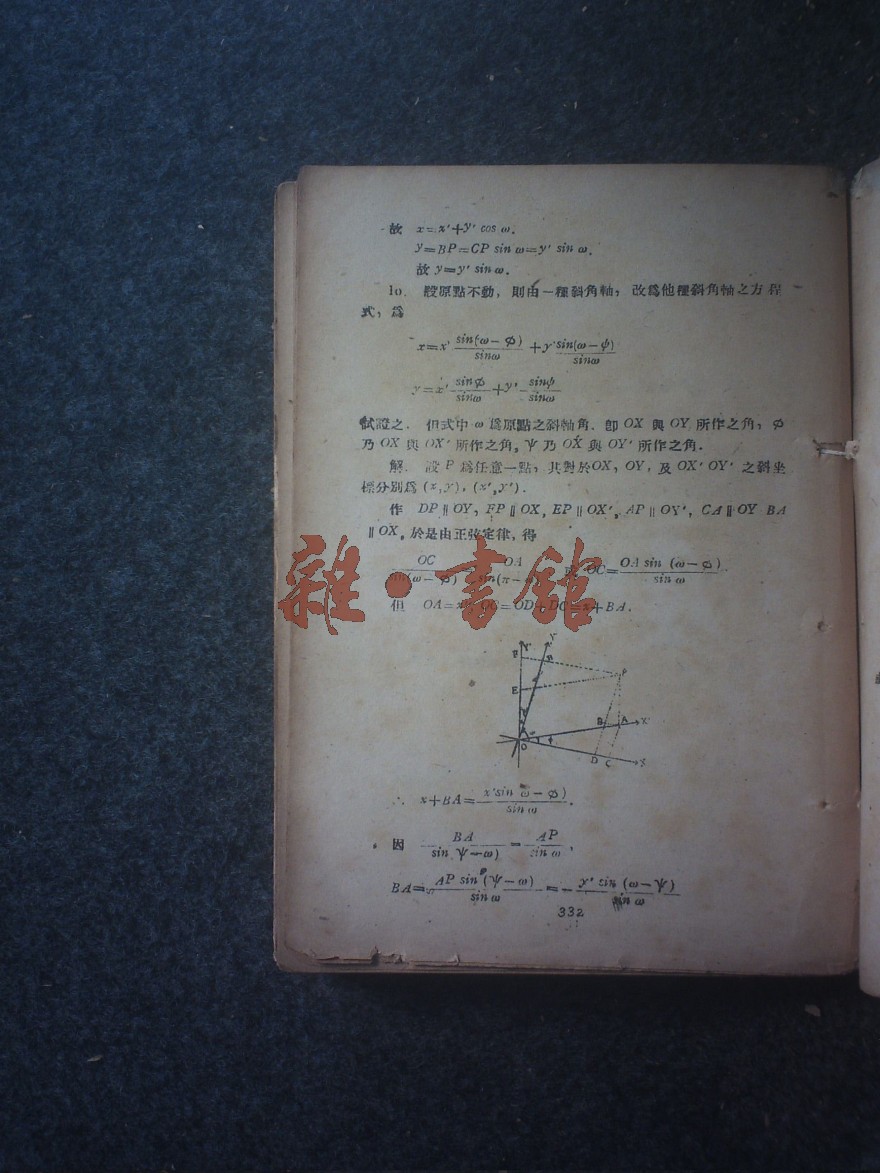 故 x=x'+y' cos ω.
y=BP=CP sin ω=y' sin ω.
故 y=y' sin ω.
10. 設原點不動，則由一種斜角軸，改爲他種斜角軸之方程
式，爲
x=x' sin(ω-φ)/sinω +y' sin(ω-ψ)/sinω
y=x' sinφ/sinω +y' sinψ/sinω
試證之．但式中 ω 爲原點之斜軸角．卽 OX 與 OY 所作之角，φ
乃 OX 與 OX' 所作之角。Ψ 乃 OX 與 OY' 所作之角．
解．設 P 爲任意一點，其對於OX，OY，及 OX' OY' 之斜坐
標分別爲 (x,y)，(x',y')．
作 DP∥OY，FP∥OX，EP∥OX'，AP∥OY'，CA∥OY BA
∥OX。於是由正弦定律，得
OC/sin(ω-φ) OA/sin(π-ω) OC= OA sin (ω-φ)/sin ω
雜·書館
但 OA=x' OC=OD+DC=x+BA.
Y' Y
F R P
E
B A X'
O D C X
∴ x+BA= x'sin ω-φ)/sin ω.
因 BA/sin Ψ-ω) = AP/sin ω,
BA= AP sin (Ψ-ω)/sin ω =- y' sin (ω-Ψ)/sin ω
332